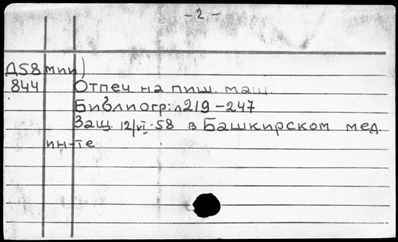 - 2 -
Д58 мин)
844 Отпеч. на пиш. маш.
Библиогр: л219-247
Защ. 12/VI-58 в Башкирском мед.
ин-те